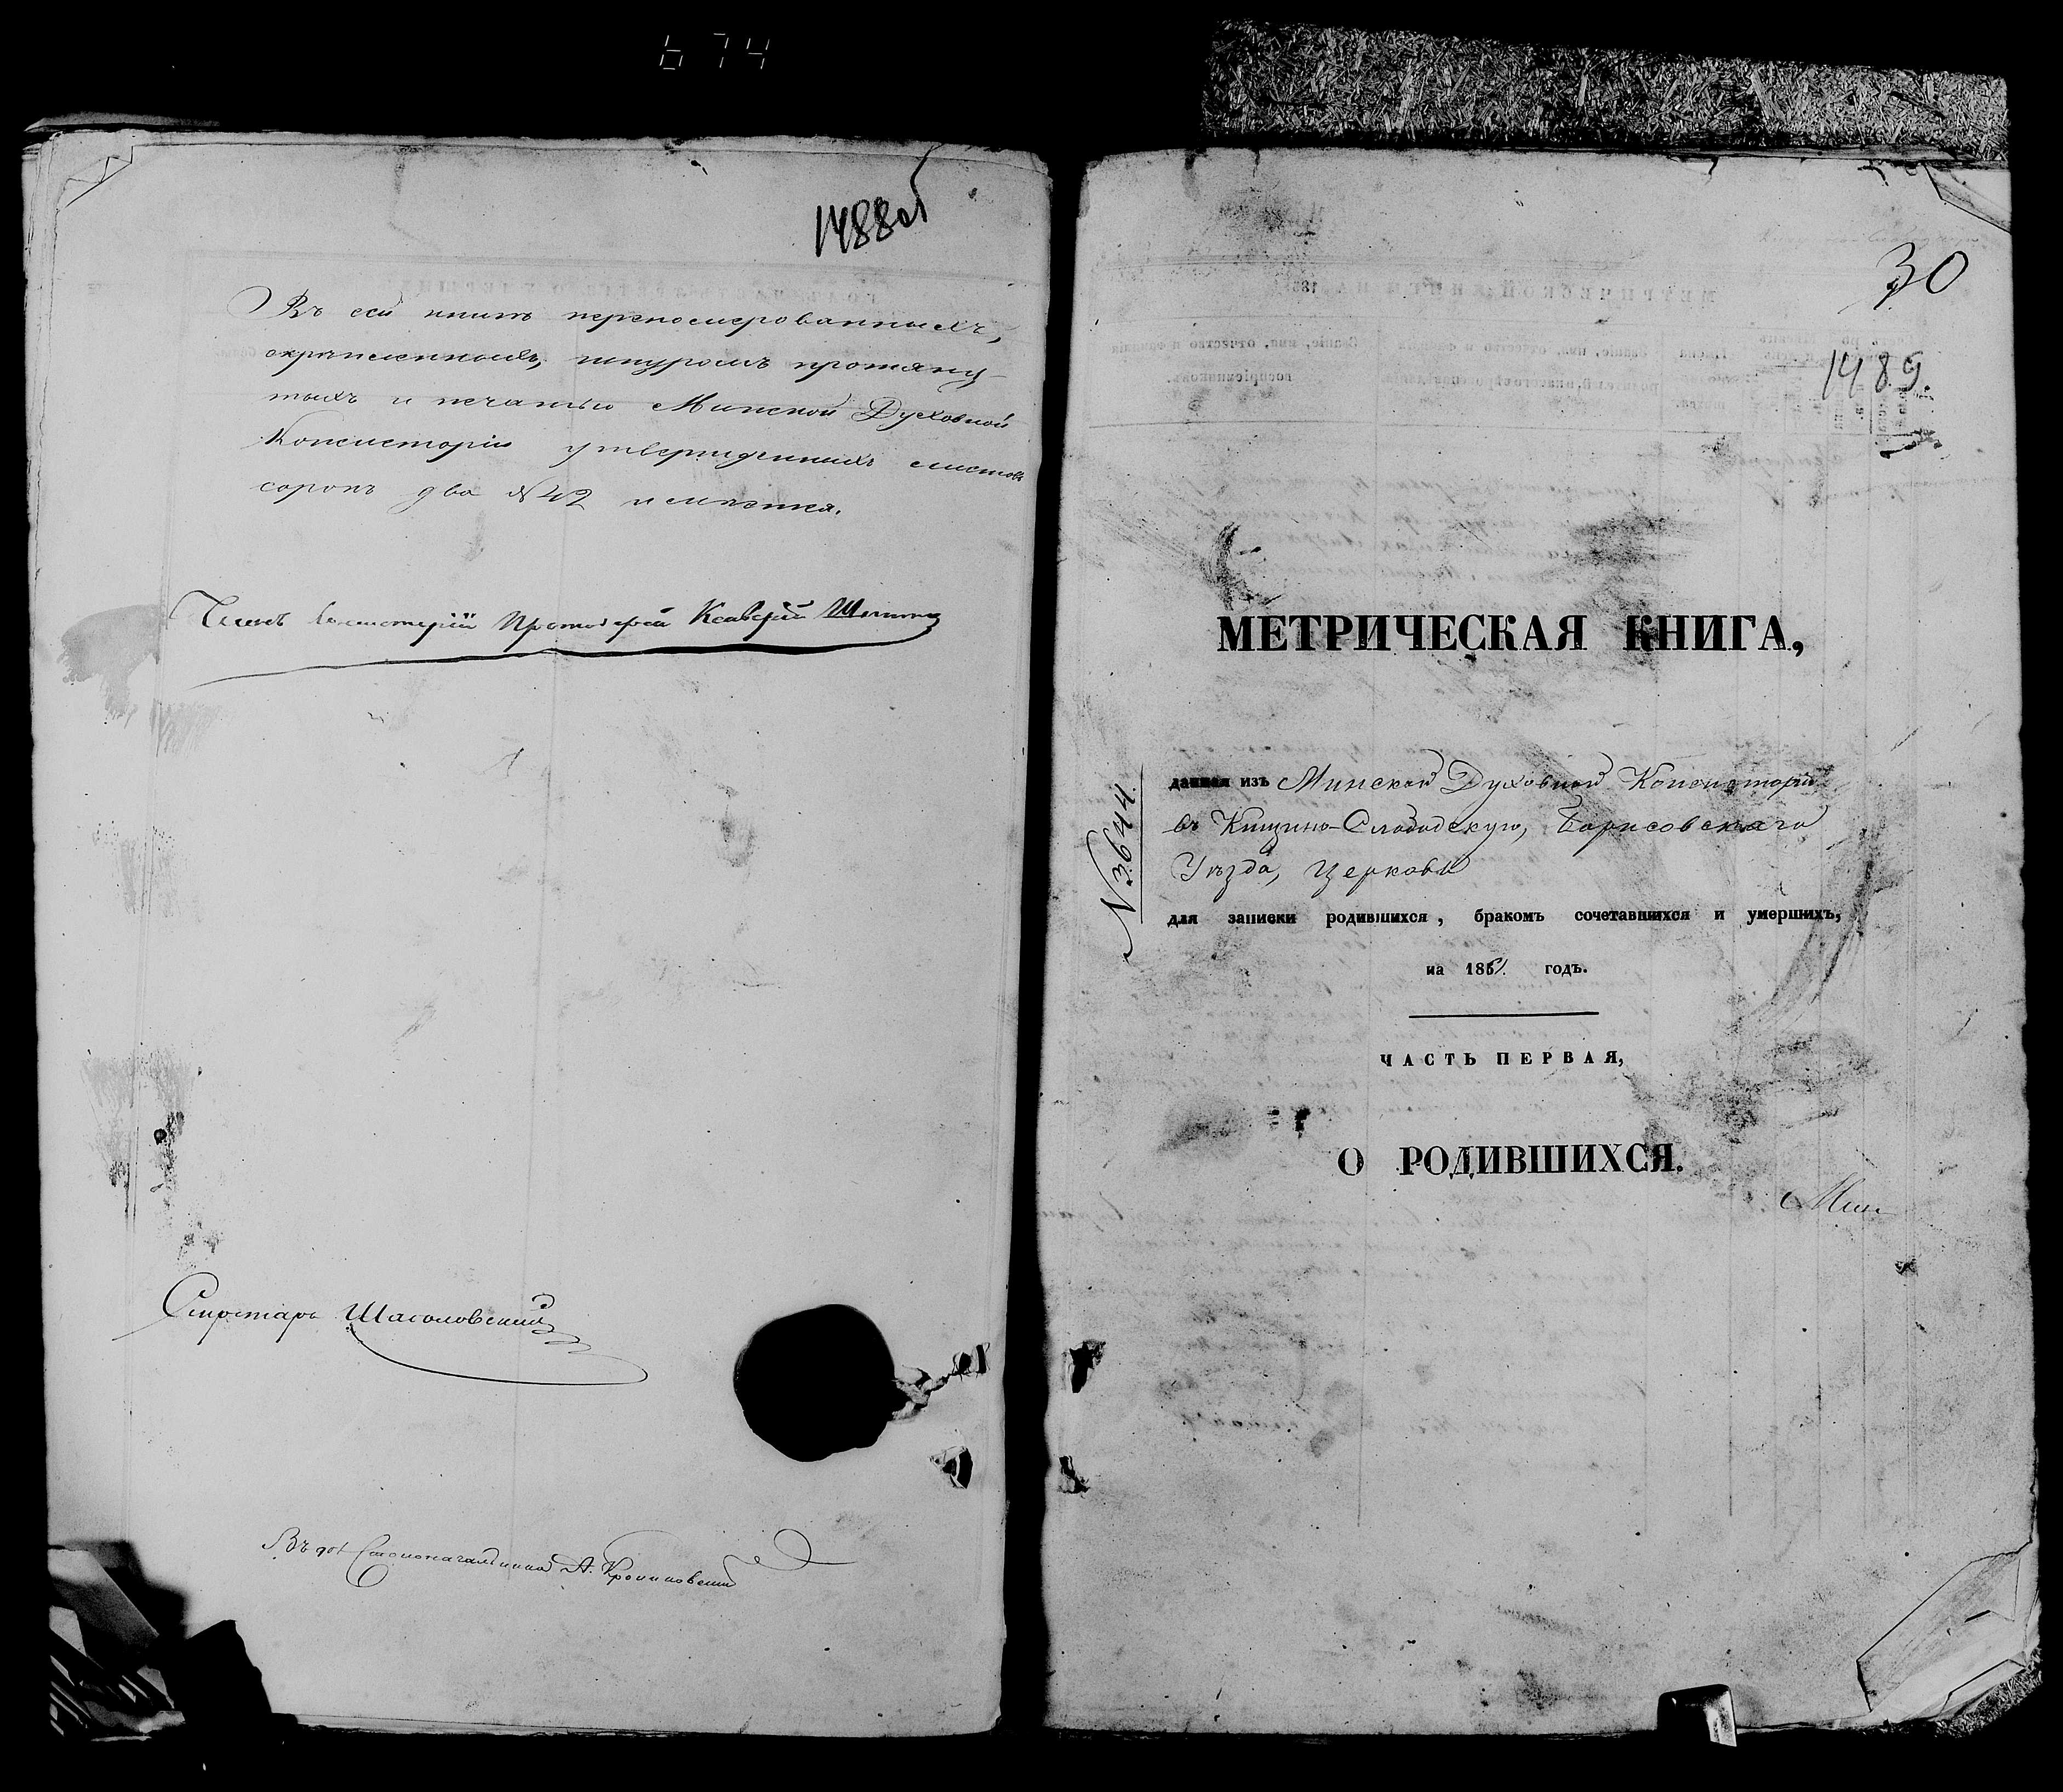 674
1488об
Въ сей книгѣ перенумерованныхъ,
скрѣпленныхъ, шнуромъ протяну-
тыхъ и печатью Минской Духовной
Консисторіи утвержденныхъ листовъ
сорокъ два №42 и
Членъ Консисторіи Протоіерей Ксаверій
Секретарь
Столоначальника А.
30
1489.
МЕТРИЧЕСКАЯ КНИГА,
№3644.
данная изъ Минской Духовной Консисторіи
въ Кищино-Слободскую, Борисовскаго
Уѣзда, Церковь
для записки родившихся, бракомъ сочетавшихся и умершихъ,
на 1851. годъ.
ЧАСТЬ ПЕРВАЯ,
О РОДИВШИХСЯ.
Мин